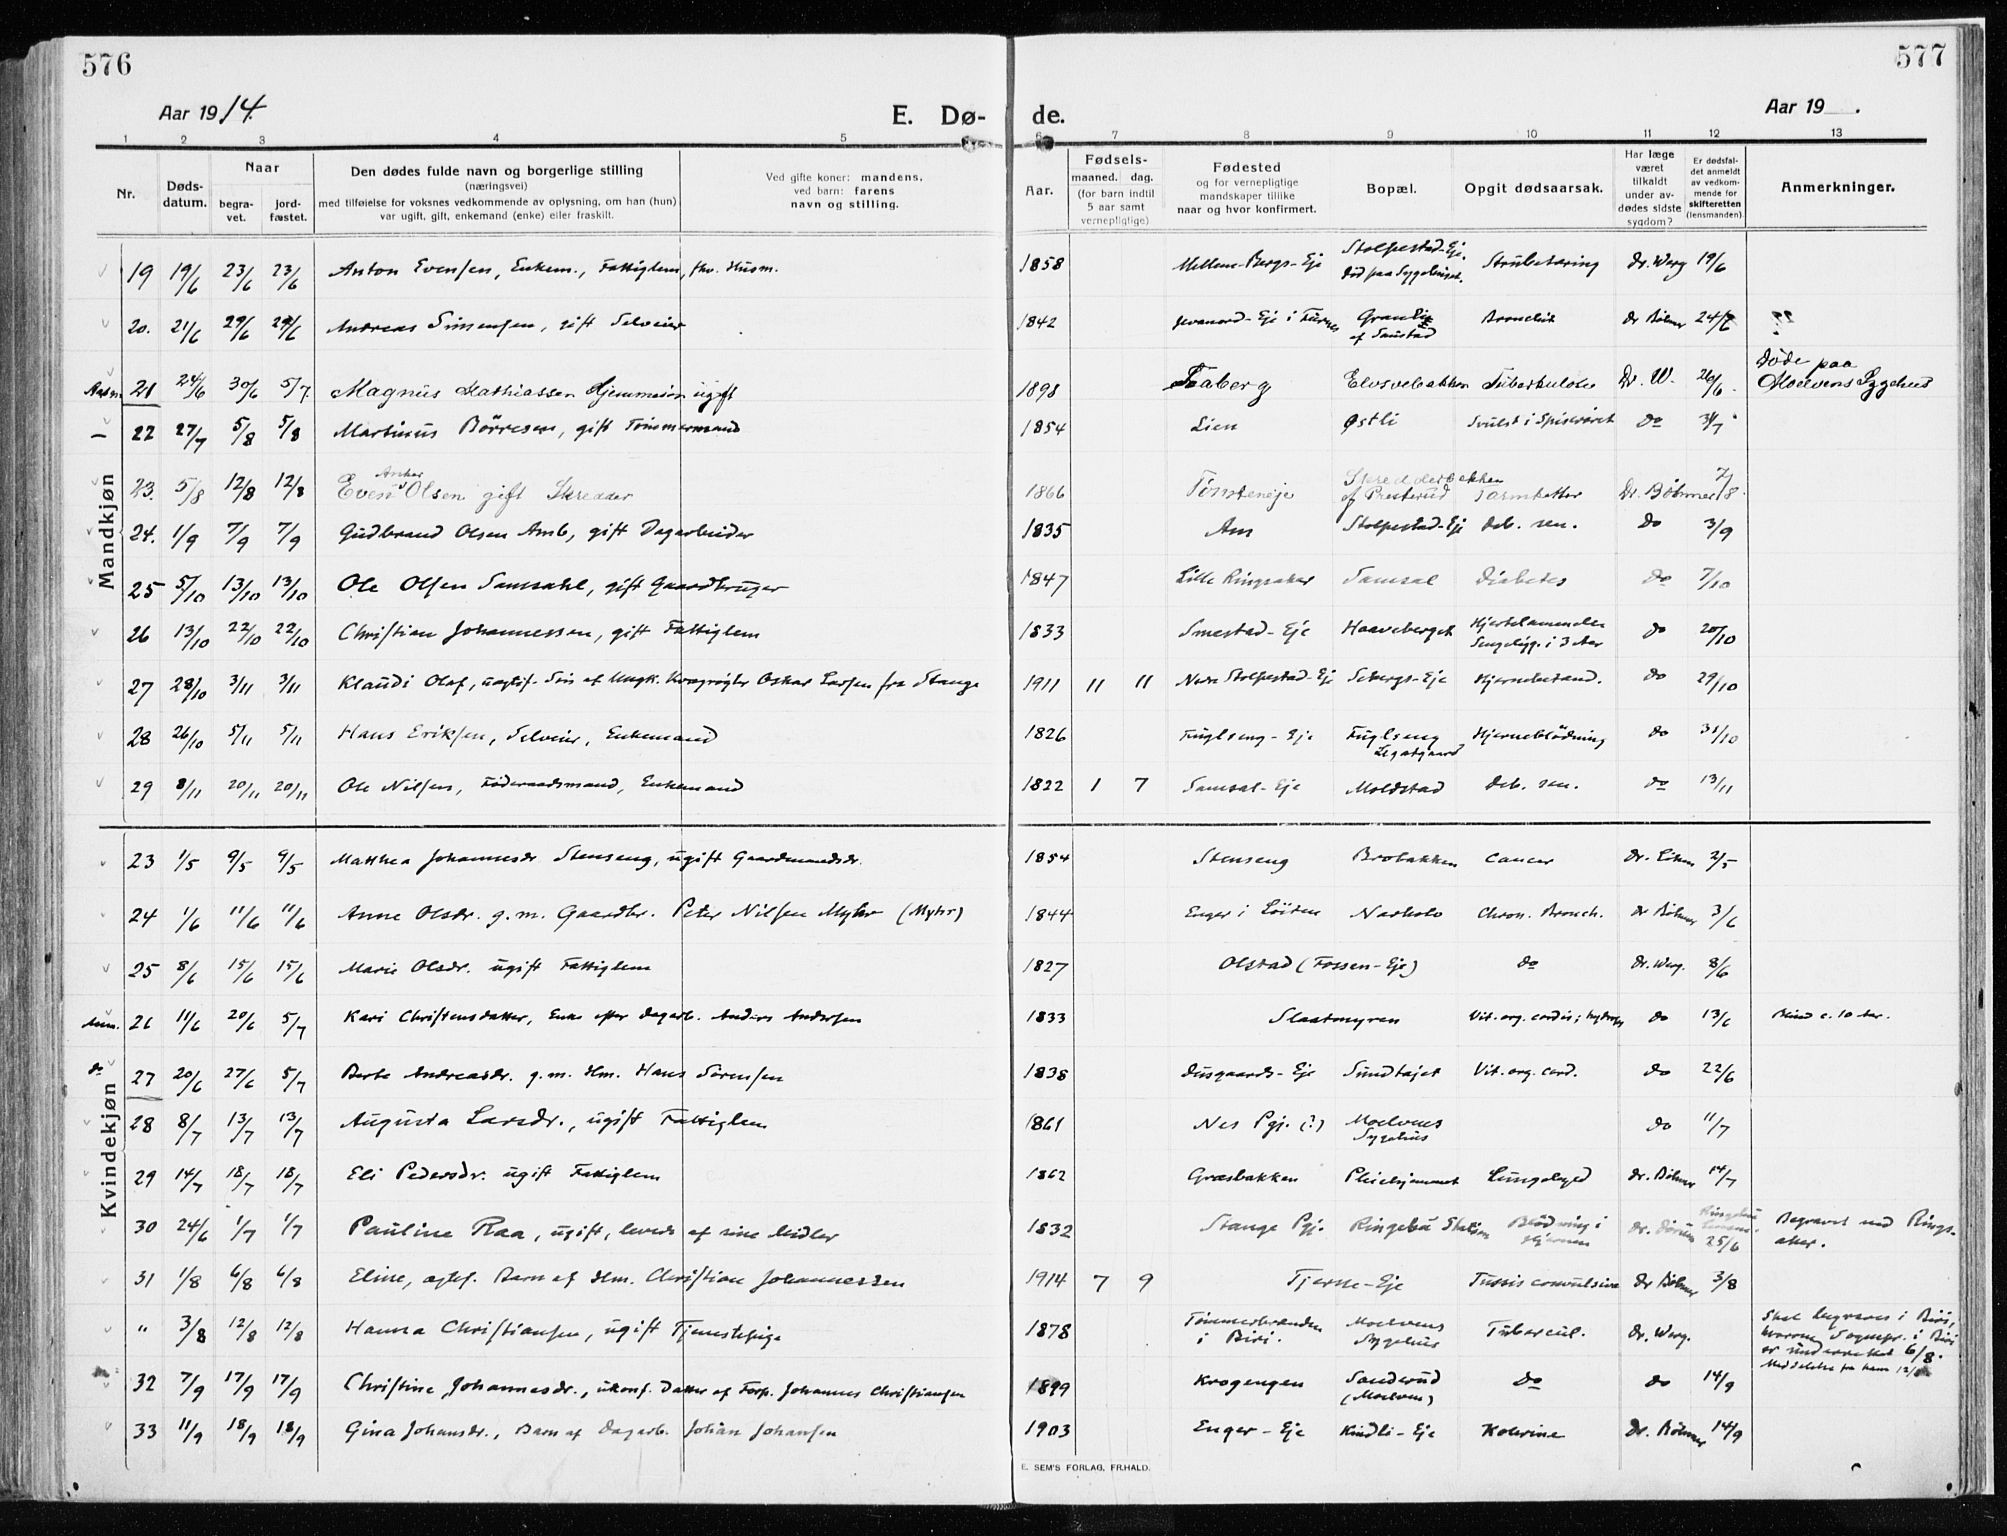 576
577
Aar 1914.
E. Dø-
de.
Aar 19 .
1 2 3 4 5 6 7 8 9 10 11 12 13
Nr.
Døds-
datum.
Naar
begra-
vet.
jord-
fæstet.
Den dødes fulde navn og borgerlige stilling
(næringsvei)
med tilføielse for voksnes vedkommende av oplysning, om han (hun)
var ugift, gift, enkemand (enke) eller fraskilt.
Ved gifte koner: mandens,
ved barn: farens
navn og stilling.
Aar.
Fødsels-
maaned. dag.
(for barn indtil
5 aar samt
vernepligtige)
Fødested
og for vernepligtige
mandskaper tillike
naar og hvor konfirmert.
Bopæl.
Opgit dødsaarsak.
Har læge
været
tilkaldt
under av-
dødes sidste
sygdom?
Er dødsfal-
det anmeldt
av vedkom-
mende for
skifteretten
(lensmanden)
Anmerkninger.
Mandkjøn
19 19/6 23/6 23/6 Anton Evensen, Enkem., Fattiglem, fhv. Husm. 1858 Mellem-Bergs-Eje Stolpestad-Eje. Død paa Sygehuset. Strubetæring Dr. Werg 19/6
20. 21/6 29/6 29/6 Andreas Simensen, gift Selveier 1842 Eje i Furnes Granli af Saustad Bronchit Dr Böhmer 24/6
21 24/6 30/6 5/7. Magnus Mathiassen Hjemmesøn ugift 1898 Faaberg Elvsvebakken Tuberkulose Dr. W. 26/6. Døde paa Moelvens Sygehus
22 27/7 5/8 5/8 Martinus Børresen, gift Tømmermand 1854 Lien Østli Svulst i Spiserøret do 31/7
23. 5/8 12/8 12/8 Even Anker Olsen gift Skredder 1866 Tømteneje Skredderbakken af Presterud Tarmkatter Dr. Böhmer 7/8.
24. 1/9 7/9 7/9 Gudbrand Olsen Amb, gift Dagarbeider 1835 Am Stolpestad-Eje deb. sen. do 3/9
25 5/10 13/10 13/10 Ole Olsen Samsahl, gift Gaardbruger 1847 Lille Ringsaker Samsal Diabetes do 7/10
26 13/10 22/10 22/10 Christian Johannessen, gift Fattiglem 1833 Smestad-Eje Haaveberget Hjertelammelse Sengeligg. i 3 Aar do 20/10
27 28/10 3/11 3/11 Klaudi Olaf, uægtef. Søn af Ungk. Oskar Larsen fra Stange 1911 11 11 Nedre Stolpestad-Eje Sebergs-Eje Hjernebetænd. do 29/10
28 26/10 5/11 5/11 Hans Eriksen, Selveier, Enkemand 1826 Fuglseng-Eje Fuglseng Legatgaard Hjerneblødning do 31/10
29 8/11 20/11 20/11 Ole Nilsen, Føderaadsmand, Enkemand 1822 1 7 Samsal-Eje Moldstad deb. sen. do 13/11
Kvindekjøn
23 1/5 9/5 9/5 Matthea Johannesdr. Stenseng, ugift Gaardmandsdr. 1854 Stenseng Brobakken cancer dr. 2/5
24 1/6 11/6 11/6 Anne Olsdr. g. m. Gaardbr. Peter Nilsen Myhr (Myhr) 1844 Enger i Löiten Chron. Bronch. dr Böhmer 3/6
25 8/6 15/6 15/6 Marie Olsdr. ugift Fattiglem 1827 Olstad (Fossen-Eje) do Dr. Werg. 8/6
26 11/6 20/6 5/7 Kari Christensdatter, Enke efter Dagarb. Anders Andersen 1833 Slaatmyren Vit. org. cordis; hydrops do 13/6 Blind c. 10 Aar.
do 27 20/6 27/6 5/7 Berte Andreasdr. g. m. Hm. Hans Sørensen 1838 Dusgaards-Eje Sundhøjet Vit. org. cord. do 22/6
28 8/7 13/7 13/7 Augusta Larsdr., ugift Fattiglem 1861 Nes Pgj. (?) Moelvens Sygehus do 11/7
29 14/7 18/7 18/7 Eli Pedersdr. ugift Fattiglem 1862 Græsbakken Pleiehjemmet Lungebetænd Dr. Böhmer 14/7
30 24/6 1/7 1/7 Pauline Raa, ugift, levede af sine Midler 1832 Stange Pgj. Ringebu Station Blødning i Hjernen Ringebu 25/6 Begravet ved Rings-aker.
31 1/8 6/8 6/8 Eline, ægtef. Barn af Hm. Christian Johannessen 1914 7 9 Tjerne-Eje Tussis convulsiva Dr Böhmer 3/8
" 3/8 12/8 12/8 Hanna Christiansen, ugift Tjenestepige 1878 i Biri. Moelvens Sygehus Tubercul. dr. Werg. Skal begraves i Biri, hvorom Sognepr. i Biri er underrettet 6/8. Meddelelse fra ham 12/8
32 7/9 17/9 17/9 Christine Johannesdr., ukonf. Datter af Forp. Johannes Christiansen 1899 Krogengen Sanderud (Moelven) do do 14/9
33 11/9 18/9 18/9 Gina Johansdr., Barn af Dagarb. Johan Johansen 1903 Enger-Eje Kindli-Eje Kolerine Dr. Böhmer 14/9
E. SEM'S FORLAG, FR.HALD.